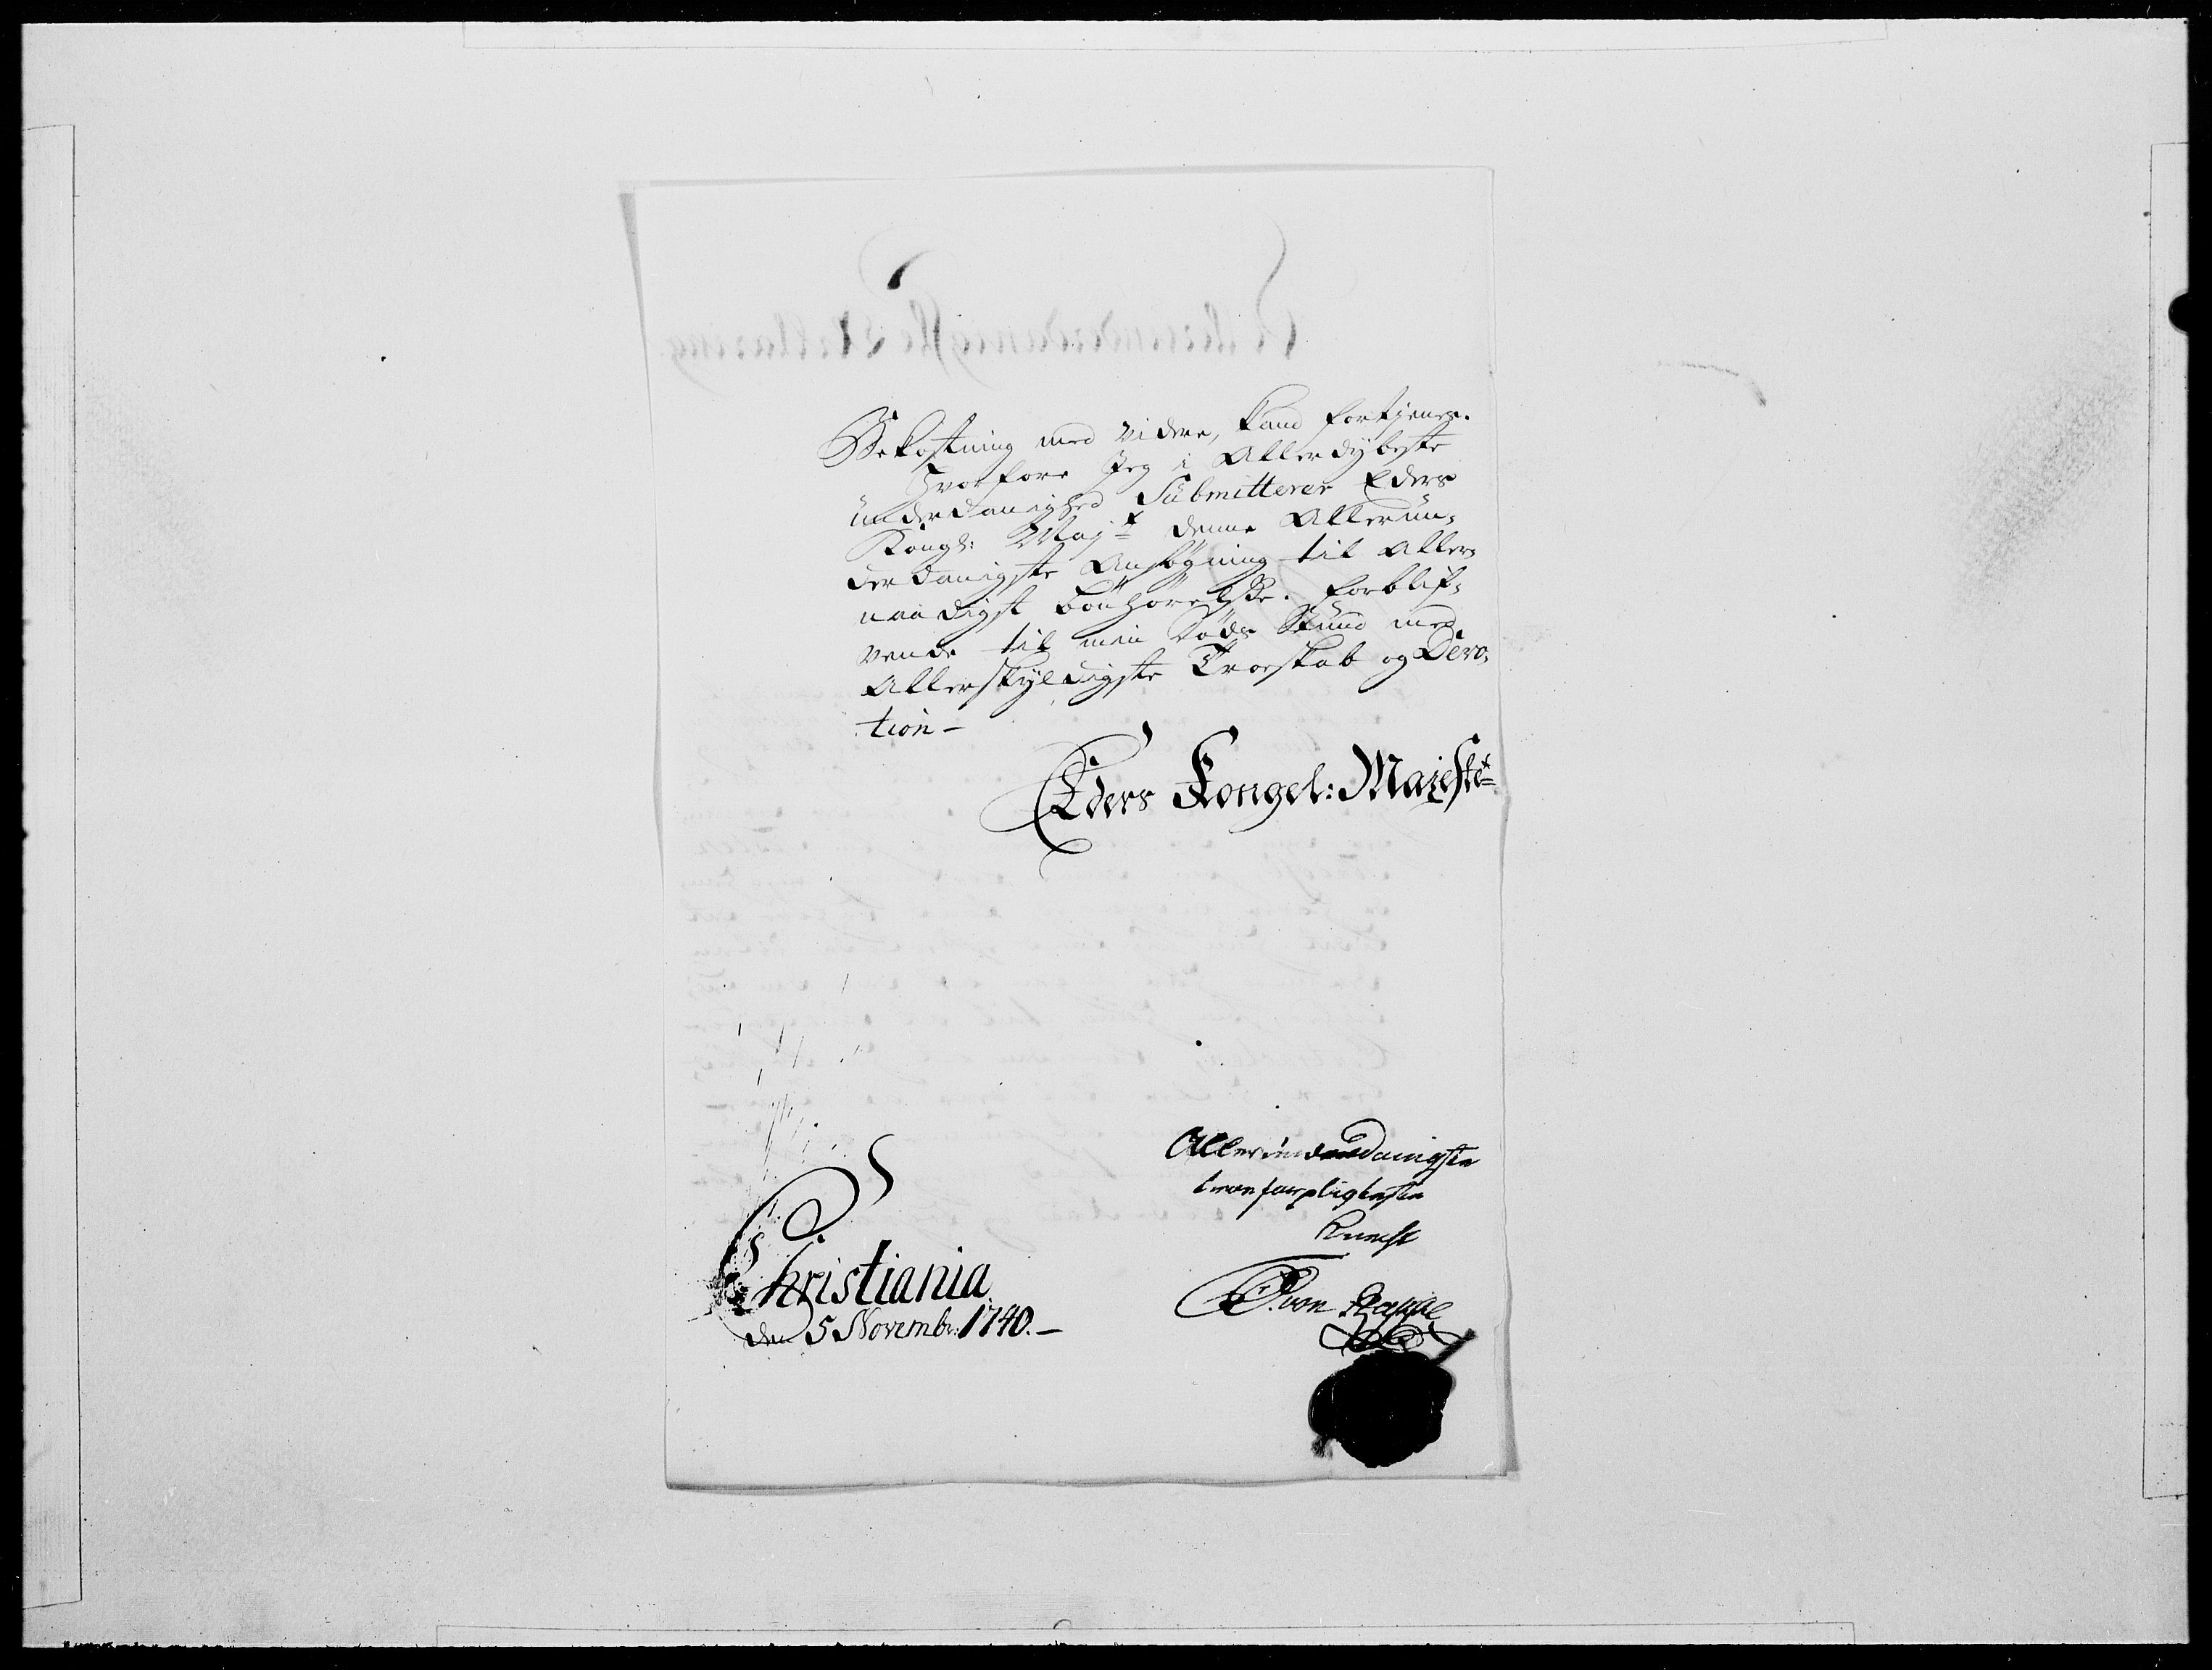 Bekostning med videre, kand fortjenes.
Hvorfore Jeg i Allerdybeste
ünderdanighed Sübmitterer Eders
Kongl: Majt denne Allerün-
derdanigste Ansøgning til Aller-
naadigst bønhörelsse. forblif-
vende til min Døds Stund med
Allerskyldigste Troeskab og Devo-
tion -
Eders Kongel: Majestet
Alleründerdanigste
troe forpligteste
Knecht
von Rappe
Christiania
den 5 Novembr: 1740. -